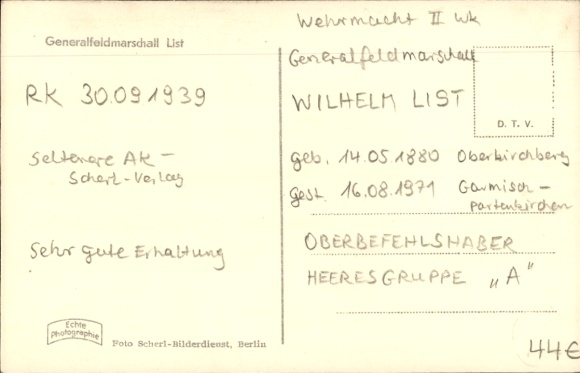 Generalfeldmarschall List
RK 30.09.1939
Seltenere AK –
Scherl-Verlag
Sehr gute Erhaltung
Echte
Photographie
Foto Scherl-Bilderdienst, Berlin
Wehrmacht II Wk
Generalfeldmarschall
WILHELM LIST
D. T. V.
geb. 14.05.1880 Oberkirchberg
gest. 16.08.1971 Garmisch –
Partenkirchen
OBERBEFEHLSHABER
HEERESGRUPPE „A"
44€